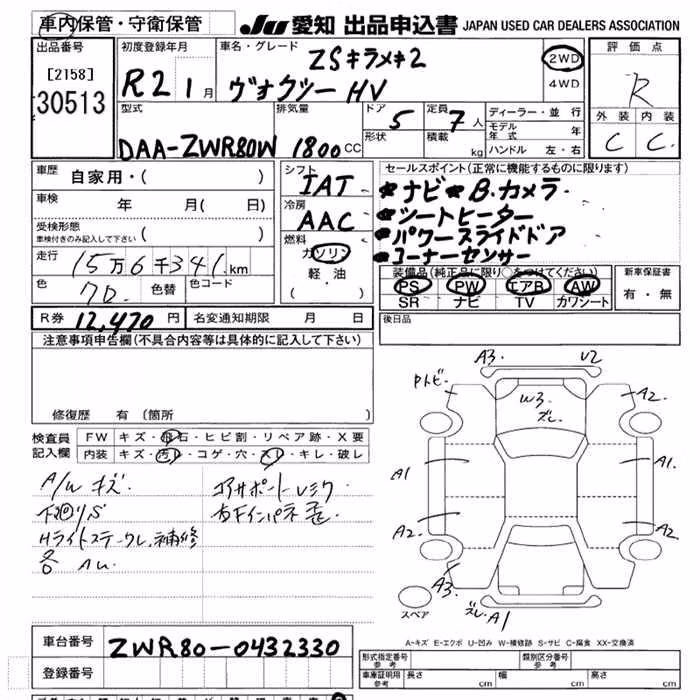 車内保管・守衛保管 JU 愛知 出品申込書 JAPAN USED CAR DEALERS ASSOCIATION
出品番号 初度登録年月 車名・グレード ZSキラメキ2 2WD 評価点
[2158] R2 1月 ヴォクシー HV 4WD R
30513 型式 排気量 ドア 5 定員 7人 ディーラー・並行 外装 内装
形状 積載 kg モデル年式 年 C C
DAA-ZWR80W 1800cc ハンドル 左・右
車歴 自家用・( ) シフト IAT セールスポイント(正常に機能するものに限ります)
車検 年 月( 日) 冷房 AAC ★ナビ★B.カメラ
受検形態 ★シートヒーター
車検付きのみ記入して下さい ( ) 燃料 ★パワースライドドア
走行 15万6千341km ガソリン ★コーナーセンサー
軽・油 装備品(純正品に限り○をつけてください) 新車保証書
色 7D. 色替 色コード (・) PS PW エアB AW 有・無
SR ナビ TV カワシート
R券 12,470円 名変通知期限 月 日 後日品
注意事項申告欄(不具合内容等は具体的に記入して下さい)
A3. V2
A2.
W3
ズレ
修復歴 有(箇所 )
検査員 FW キズ・飛石・ヒビ割・リペア跡・X要
記入欄 内装 キズ・汚レ・コゲ・穴・スレ・キレ・破レ
A/W キズ. コアサポートレミク A1 A1.
下回りS
Hライトステークレ.補修
各 ハレ A2. A2
A3
スペア ズレ A1
A-キズ E-エクボ U-凹み W-補修跡 S-サビ C-腐食 XX-交換済
車台番号 ZWR80-0432330 形式指定番号 参考 類別区分番号 参考
登録番号 車庫証明用 参考 長さ cm 幅 cm 高さ cm